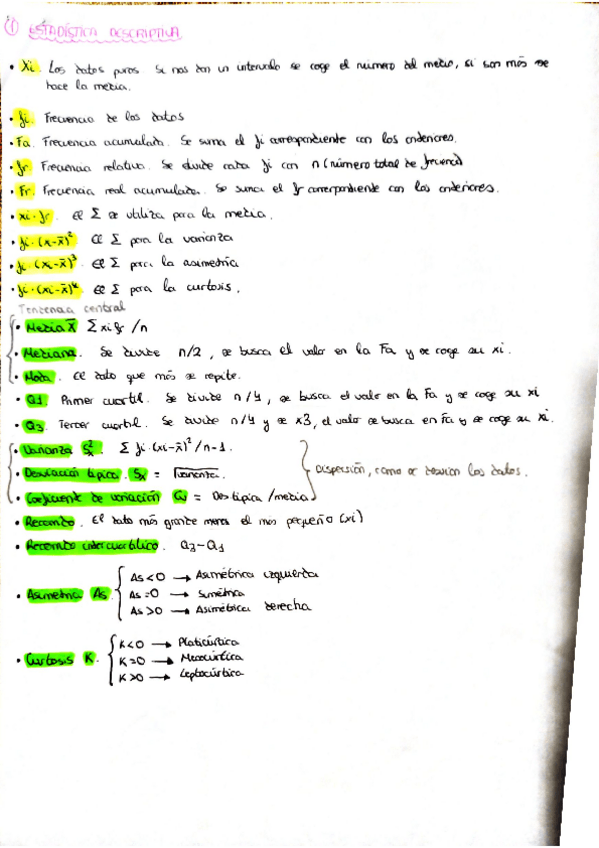 ① ESTADÍSTICA DESCRIPTIVA
• Xi. Los datos puros. Si nos dan un intervalo se coge el número del medio, si son más se
hace la media.
• fi. Frecuencia de los datos
• Fa. Frecuencia acumulada. Se suma el fi correspondiente con los anteriores.
• fr. Frecuencia relativa. Se divide cada fi con n (número total de frecuencia)
• Fr. Frecuencia real acumulada. Se suma el fr correspondiente con los anteriores.
• xi·fr. El Σ se utiliza para la media.
• fi·(xi-x̄)² El Σ para la varianza
• fi·(xi-x̄)³ El Σ para la asimetría
• fi·(xi-x̄)⁴ El Σ para la curtosis.
Tendencia central
• Media x̄ Σ xi fr /n
• Mediana. Se divide n/2, se busca el valor en la Fa y se coge su xi.
• Moda. El dato que más se repite.
• Q1. Primer cuartil. Se divide n/4, se busca el valor en la Fa y se coge su xi
• Q3. Tercer cuartil. Se divide n/4 y se x3, el valor se busca en Fa y se coge su xi.
• Varianza S²x. Σ fi·(xi-x̄)²/n-1.
• Desviación típica. Sx = √varianza.
• Coeficiente de variación = Des típica /media
Dispersión, como se desvían los datos.
• Recorrido. El dato más grande menos el más pequeño (xi)
• Recorrido intercuartílico. Q3-Q1
• Asimetría As.
As<0 → Asimétrica izquierda
As=0 → Simétrica
As>0 → Asimétrica derecha
• Curtosis K.
K<0 → Platicúrtica
K=0 → Mesocúrtica
K>0 → Leptocúrtica